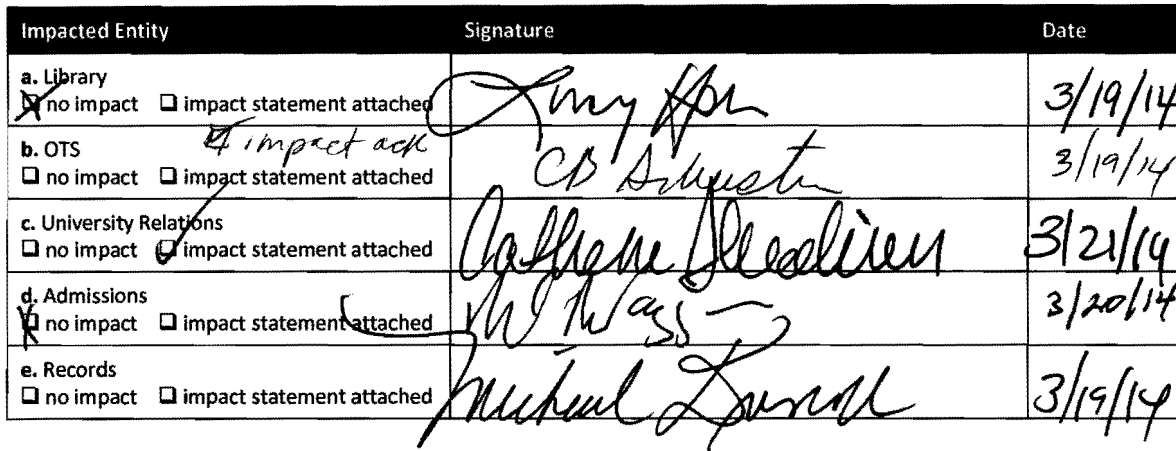 Impacted Entity Signature Date
a. Library
☒ no impact ☐ impact statement attached 3/19/14
☑ impact ack
b. OTS
☐ no impact ☐ impact statement attached CB 3/19/14
c. University Relations
☐ no impact ☑ impact statement attached 3/21/14
d. Admissions
☒ no impact ☐ impact statement attached 3/20/14
e. Records
☐ no impact ☐ impact statement attached Michael 3/19/14